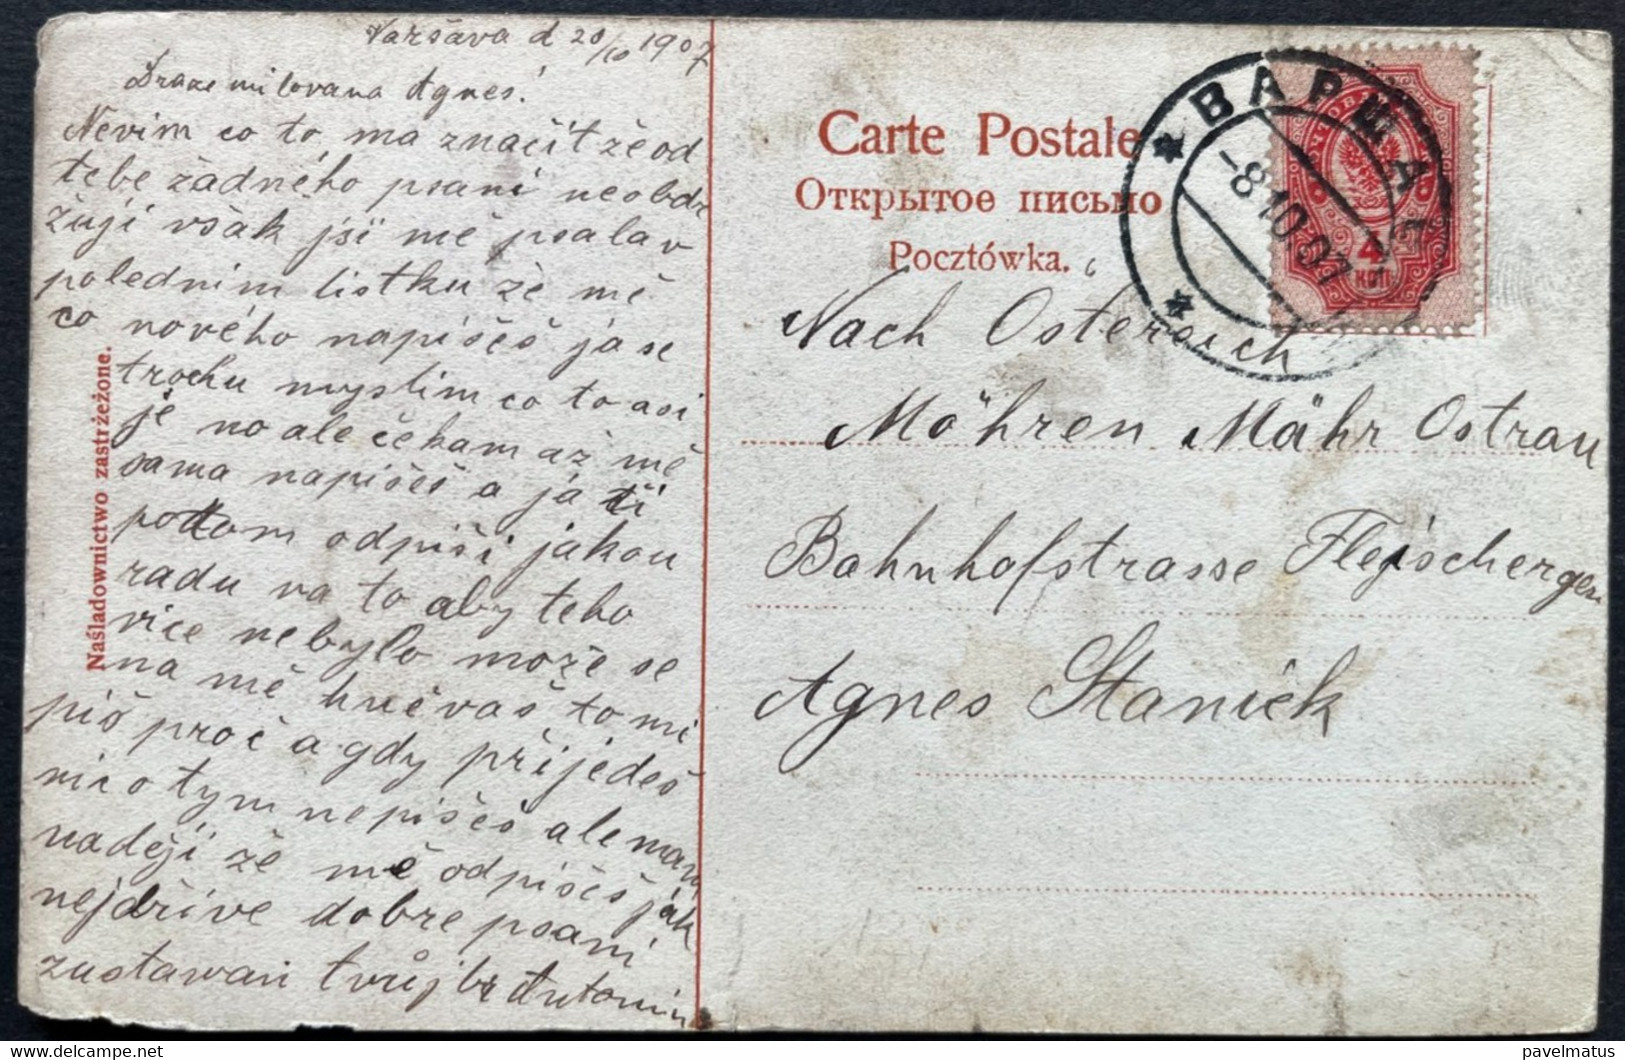 Varšava d 20/10 1907
Draze milovana Agnes!
Nevim co to ma značit že od
tebe žádného psani neobdr
žuji však jsi mě psala v
poledním listku že mě
co nového napišeš ja se
trochu myslim co to asi
je no ale čekam až mě
sama napišeš a já ti
potom odpiši jakou
radu na to aby teho
vice nebylo može se
na mě hněvaš to mi
piš proč a gdy přijedeš
nic o tym nepišeš ale mam
naději že mě odpišeš jak
nejdřive dobre psani
zustawam tvůj Antonin
Naśladownictwo zastrzeżone.
Carte Postale
Открытое письмо
Pocztówka.
ВАРШАВА
-8 10 07
4
КОП
Nach Ostereich
Möhren Mähr Ostrau
Bahnhofstrasse Flejscherges
Agnes Staniek
pavelmatus
delcampe.net